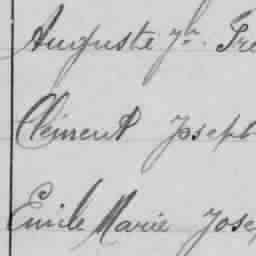 Auguste Jh. Fre
Clément Joseph
Emile Marie Jose